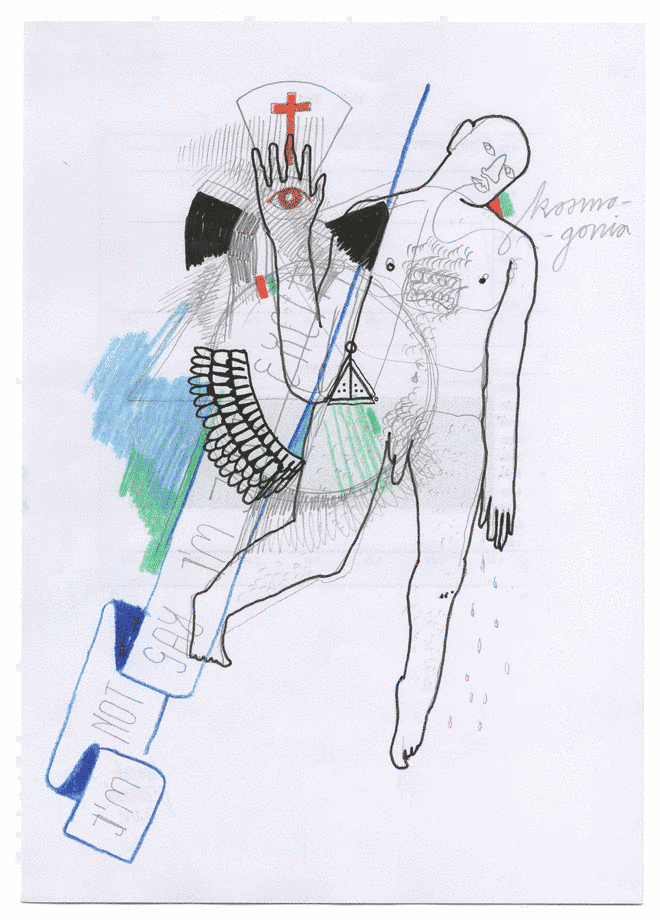 kosmo-
-gonia
I'M
NOT
GAY I'M